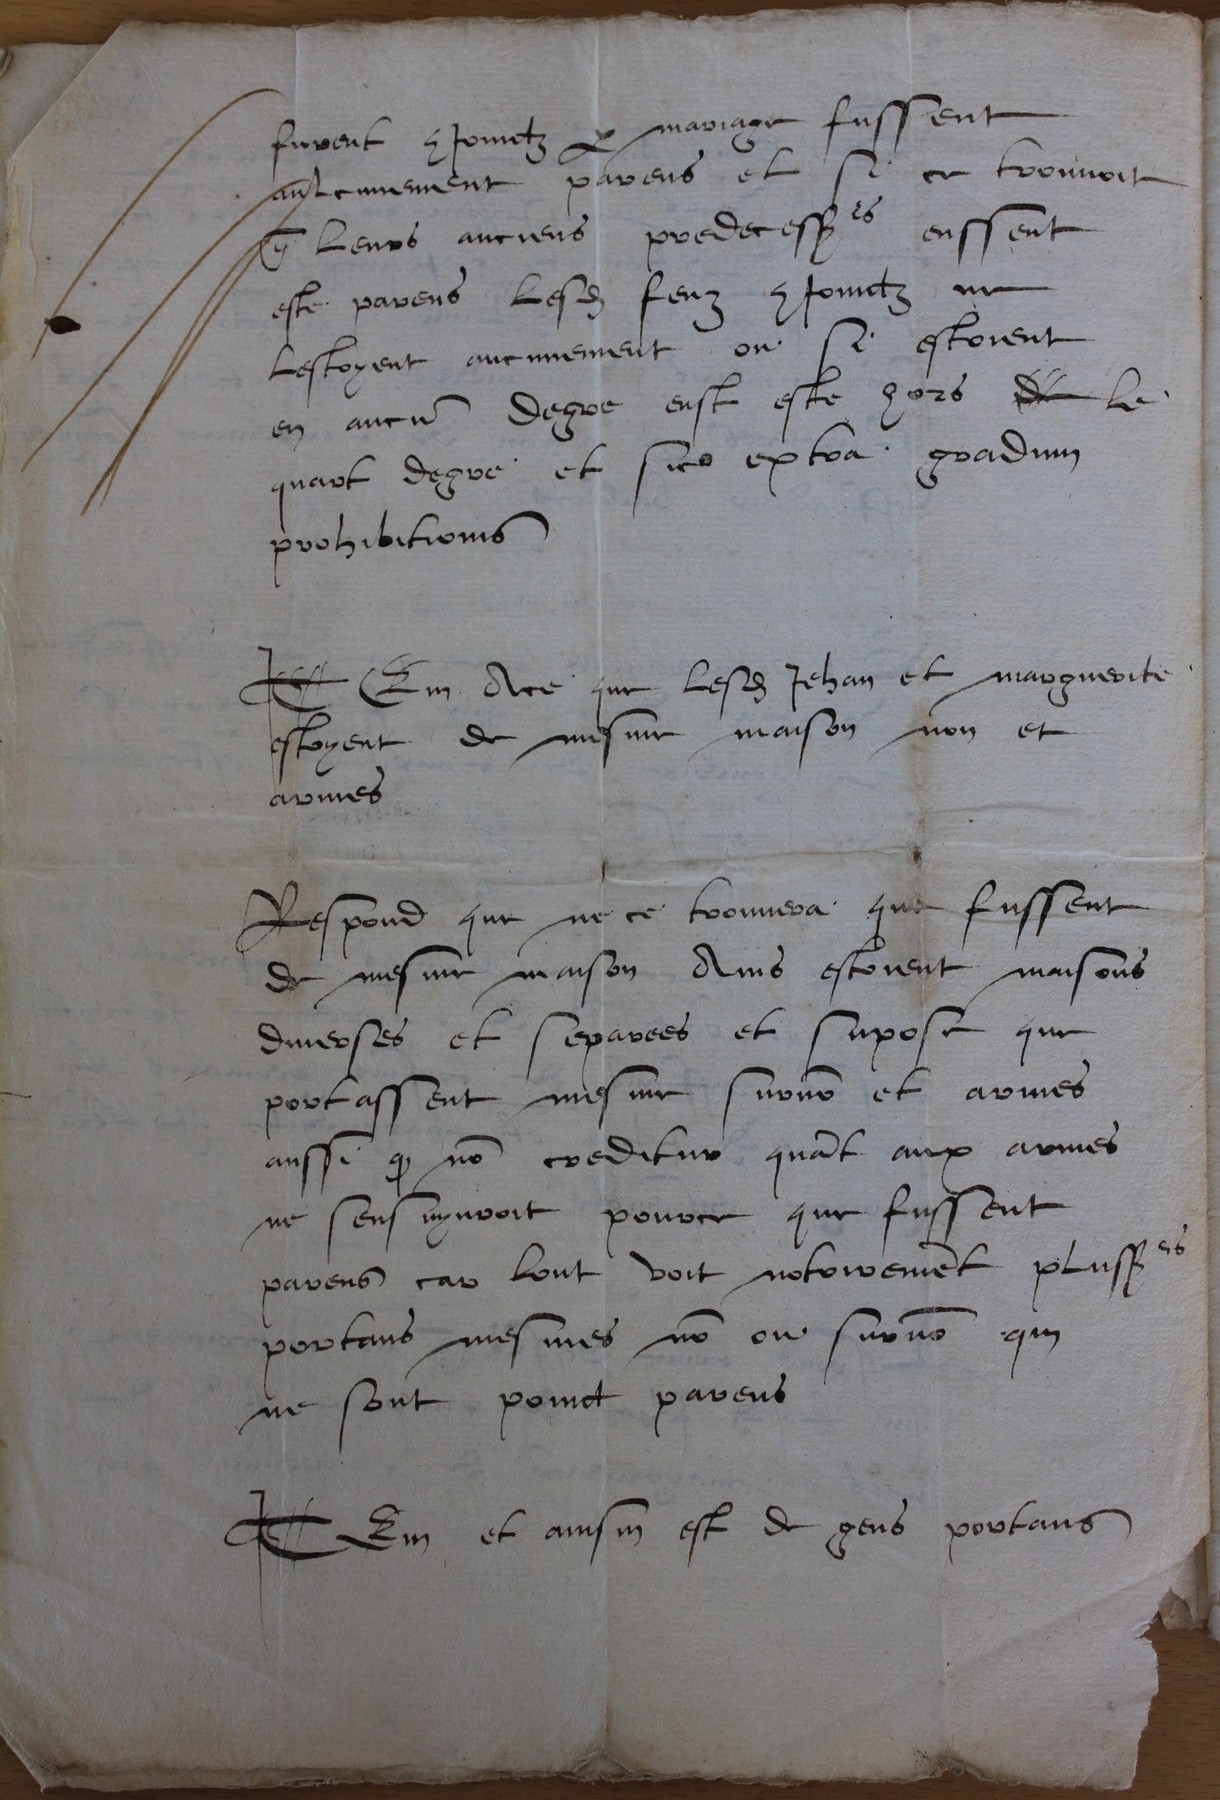 furent ꝯJoinctz ꝑ mariage fussent
aulcunement parens et si ce trouvoit
q̃ leurs anciens predecessrs eussent
este parens lesd feuz ꝯJoinctz ne
lestoyent aucunement ou si estoient
en aucũ degre eust este hors le
quart degre et sic extra gradum
prohibitionis
ITEm Ace que lesd Jehan et marguerite
estoyent de mesme maison non et
armes
Respond que ne ce trouvera que fussent
de mesme maison Ains estoient maisons
diverses et separees et supose que
portassent mesme surnõ et armes
aussi nõ creditur quãt aux armes
ne sensuyvroit pource que fussent
parens car lont voit notoiremẽt plussrs
portans mesmes nõ ou surnõ qui
ne sont poinct parens
ITEm et ainsin est de gens portans